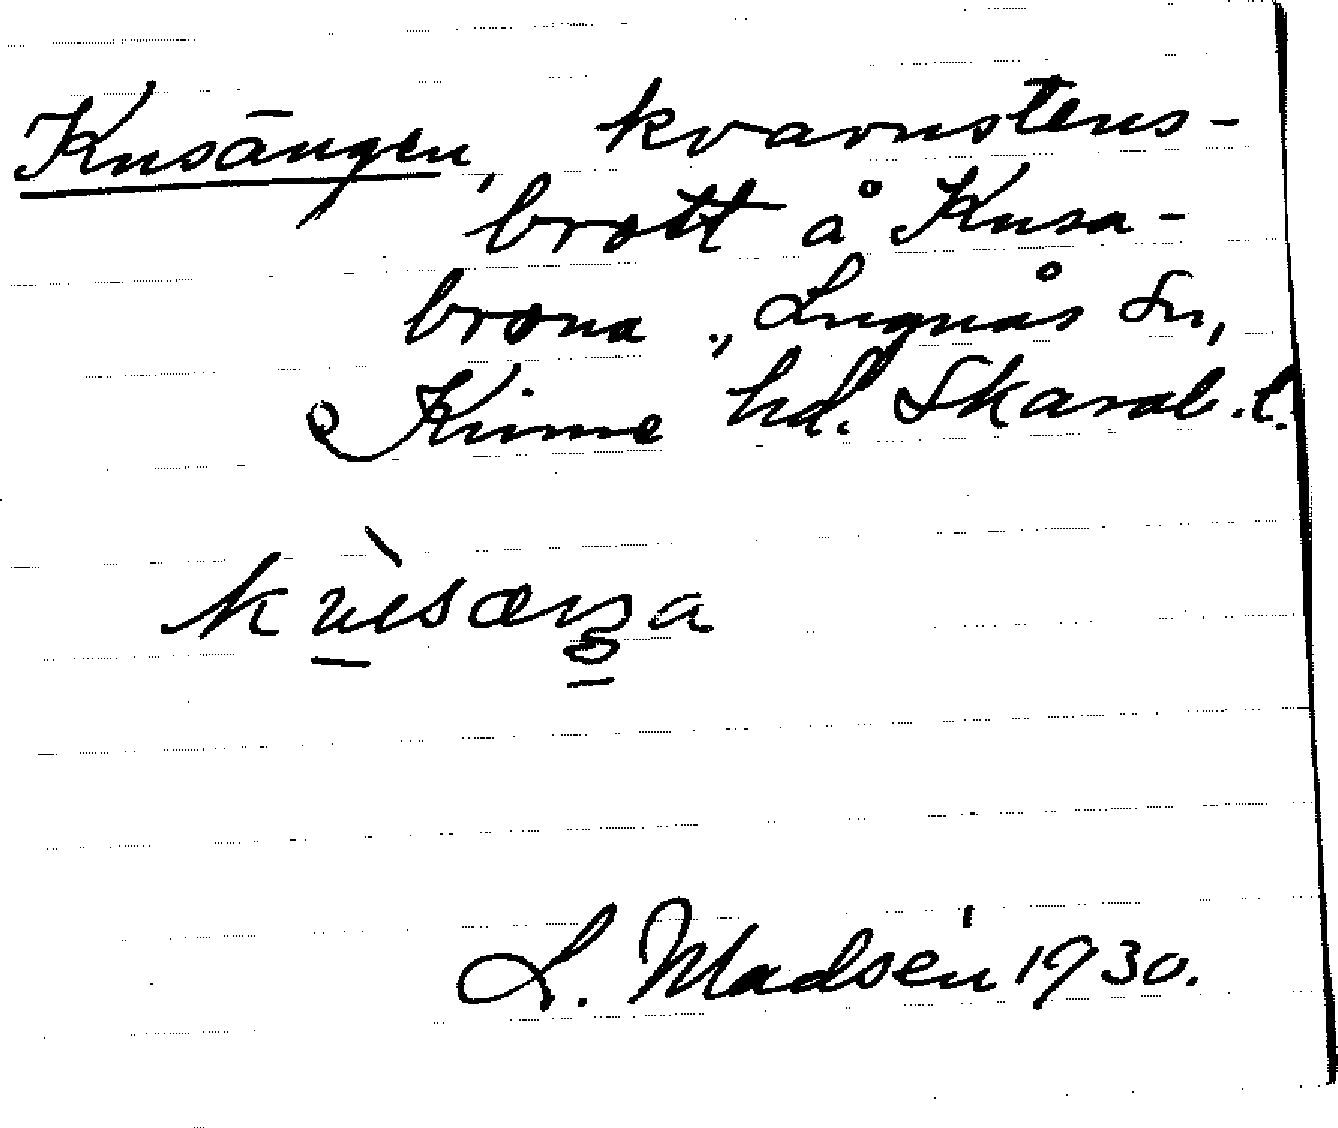 Kusängen, kvarnstens-
brott å Kusa-
brona, Lugnås Sn,
Kinne hd. Skarab. l.
L. Madsén 1930.